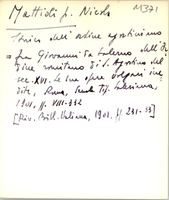 Mattioli p. Nicola M371
Storico dell'ordine agostiniano
Fra Giovanni da Salerno dell'Or
dine romitano di S. Agostino del
sec. XVI. le sue opere volgari ine
dite, Roma, tip. Salesiana,
1901, pp. VIII-332
[Riv. Bibl. Italiana, 1901, pp. 231-33]